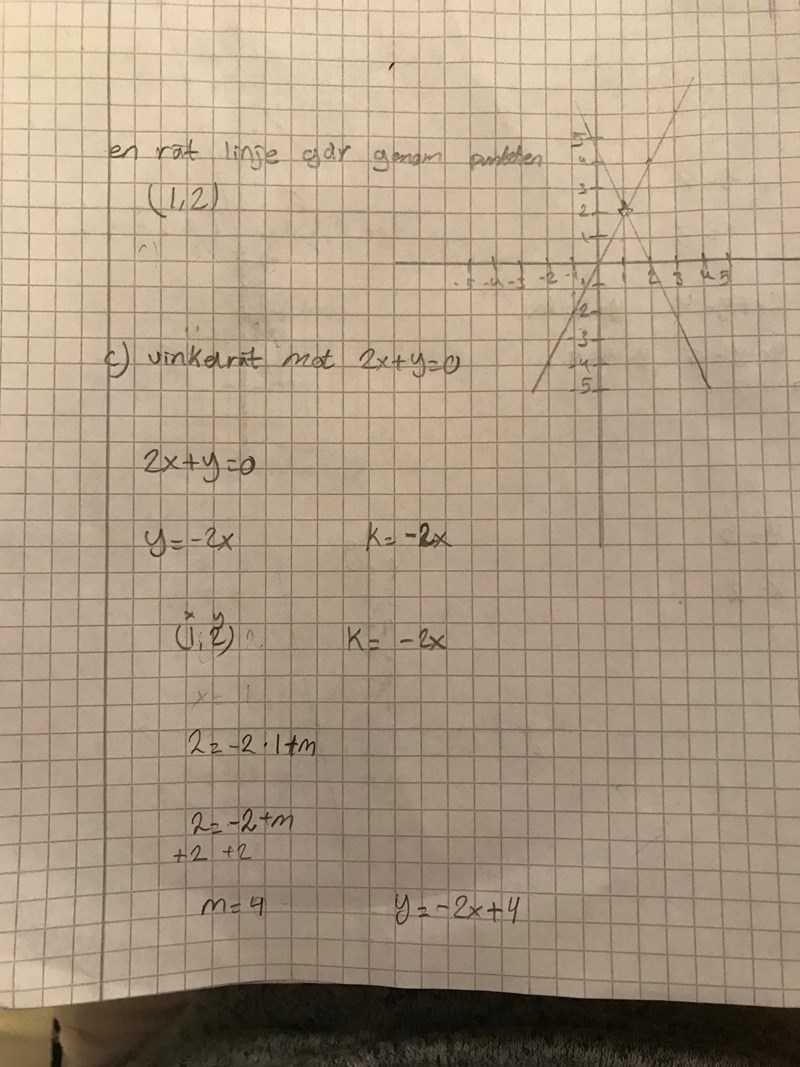 en rät linje går genom punkten
(1,2)
5
4
3
2
1
-5 -4 -3 -2 -1 1 2 3 4 5
-1
-2
-3
-4
-5
c) vinkelrät mot 2x+y=0
2x+y=0
y=-2x K=-2x
x y
(1,2) K= -2x
2=-2·1+m
2=-2+m
+2 +2
m=4 y=-2x+4